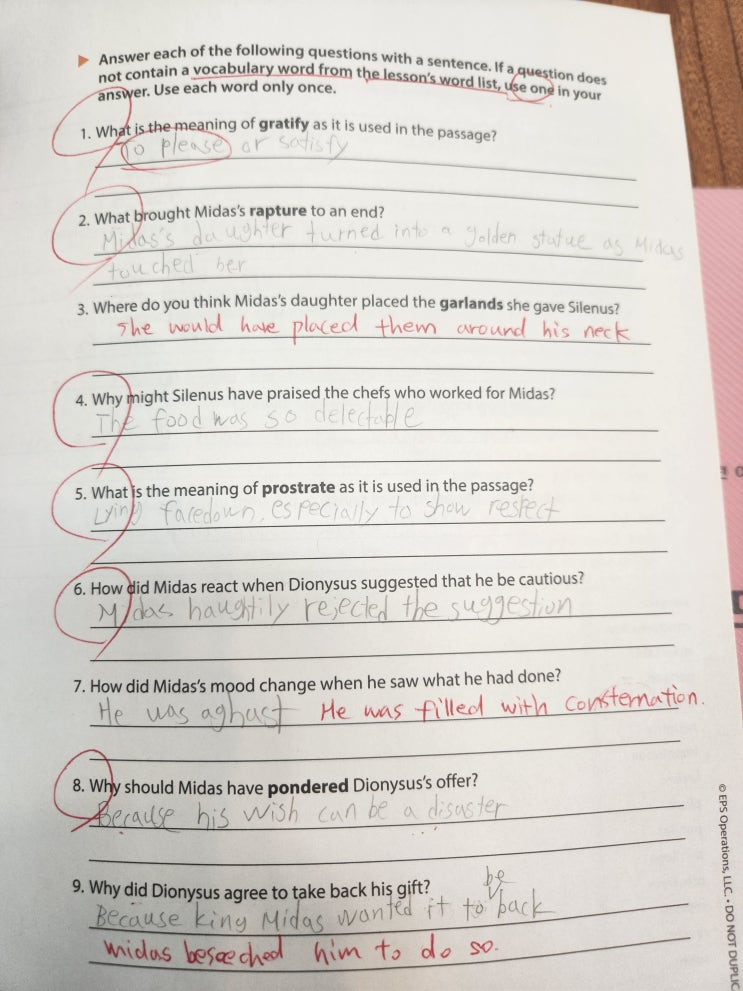 Answer each of the following questions with a sentence. If a question does
not contain a vocabulary word from the lesson's word list, use one in your
answer. Use each word only once.
1. What is the meaning of gratify as it is used in the passage?
To please or satisfy
2. What brought Midas's rapture to an end?
Midas's daughter turned into a golden statue as Midas
touched her
3. Where do you think Midas's daughter placed the garlands she gave Silenus?
She would have placed them around his neck
4. Why might Silenus have praised the chefs who worked for Midas?
The food was so delectable
5. What is the meaning of prostrate as it is used in the passage?
Lying facedown, especially to show respect
6. How did Midas react when Dionysus suggested that he be cautious?
Midas haughtily rejected the suggestion
7. How did Midas's mood change when he saw what he had done?
He was aghast He was filled with consternation.
8. Why should Midas have pondered Dionysus's offer?
Because his wish can be a disaster
9. Why did Dionysus agree to take back his gift?
be
Because king Midas wanted it to back
midas beseeched him to do so.
© EPS Operations, LLC. • DO NOT DUPLIC